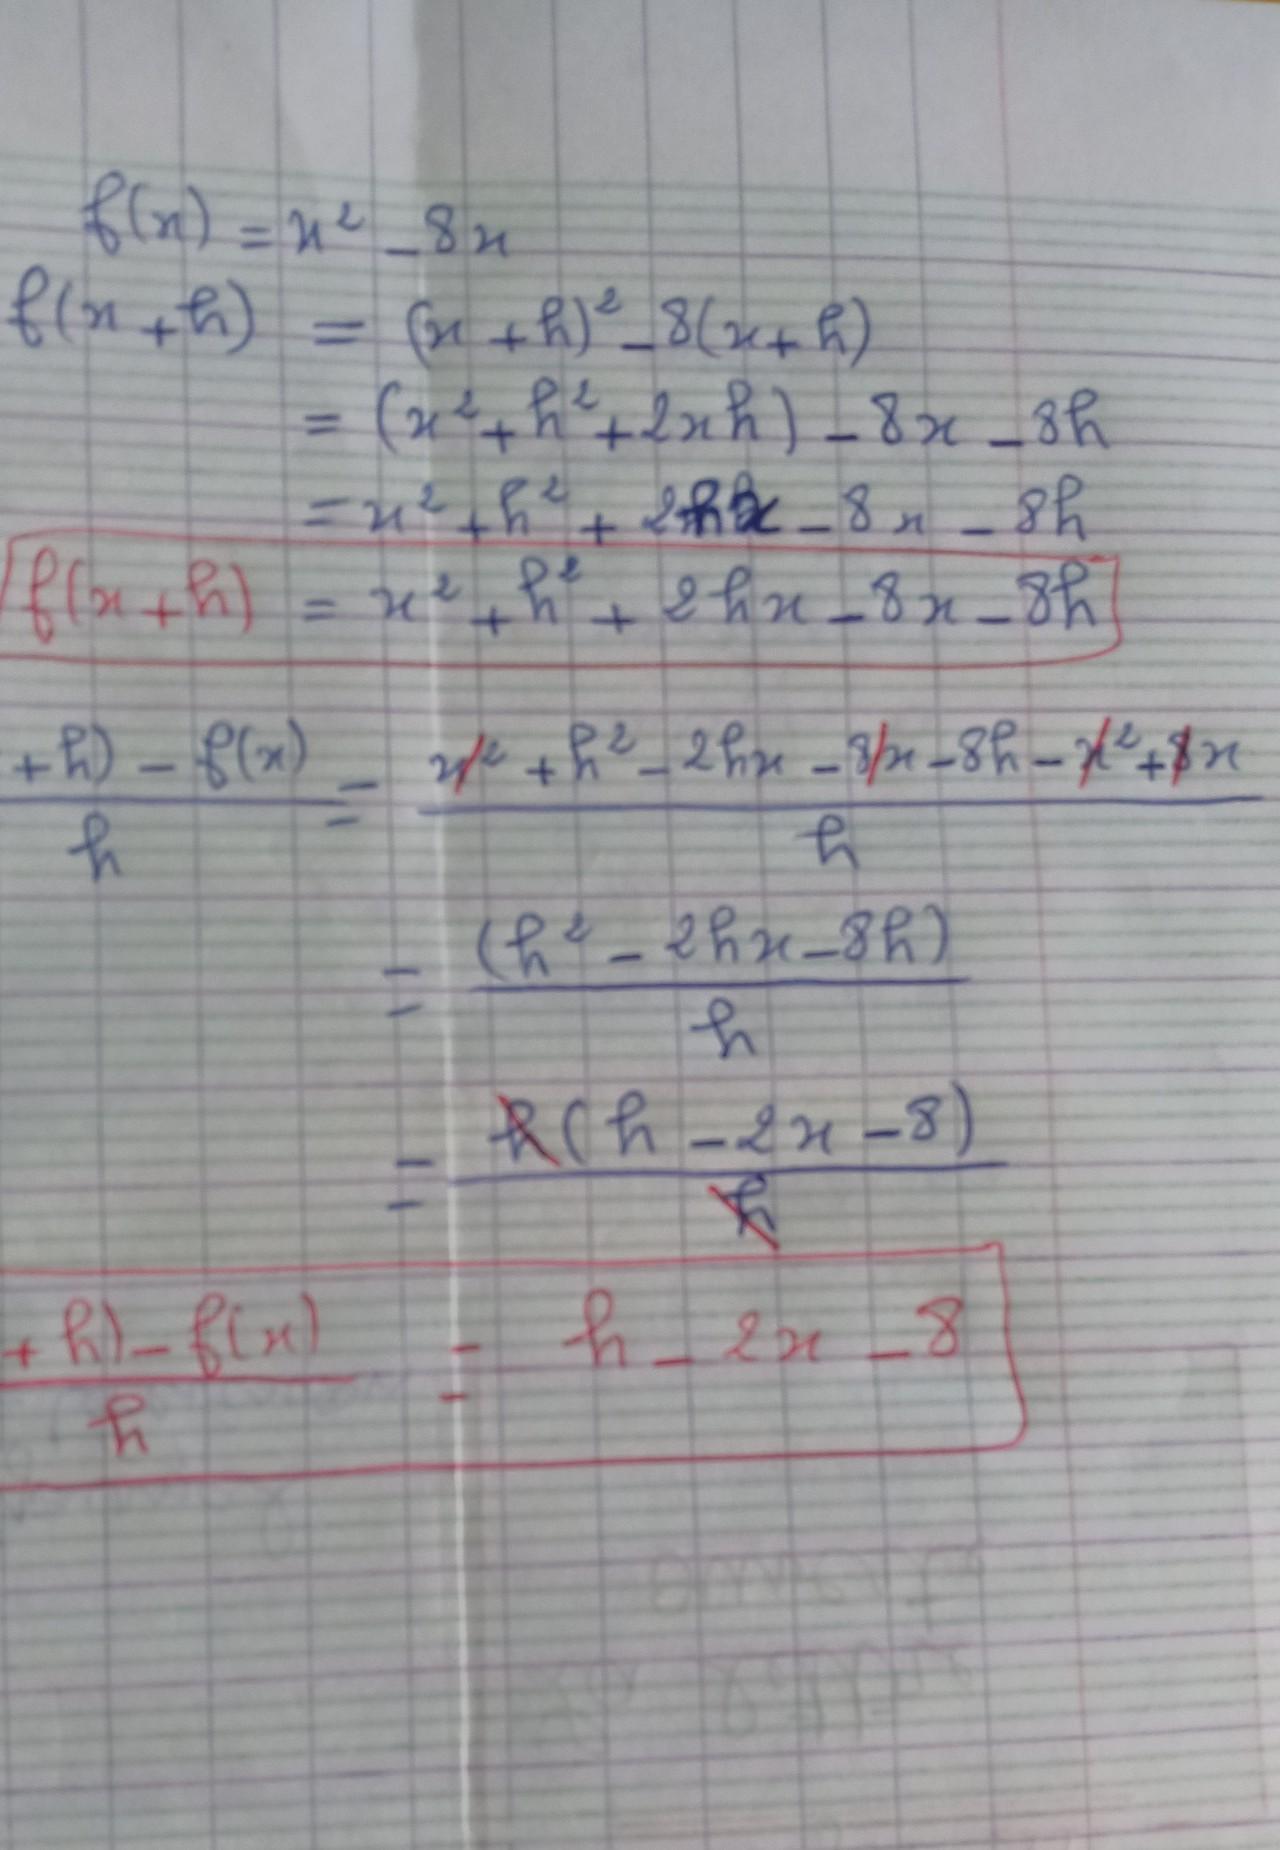 f(x) = x² - 8x
f(x + h) = (x + h)² - 8(x + h)
= (x² + h² + 2xh) - 8x - 8h
= x² + h² + 2hx - 8x - 8h
f(x + h) = x² + h² + 2hx - 8x - 8h
+ h) - f(x) = x² + h² - 2hx - 8x - 8h - x² + 8x
h h
= (h² - 2hx - 8h)
h
= h(h - 2x - 8)
h
+ h) - f(x) = h - 2x - 8
h